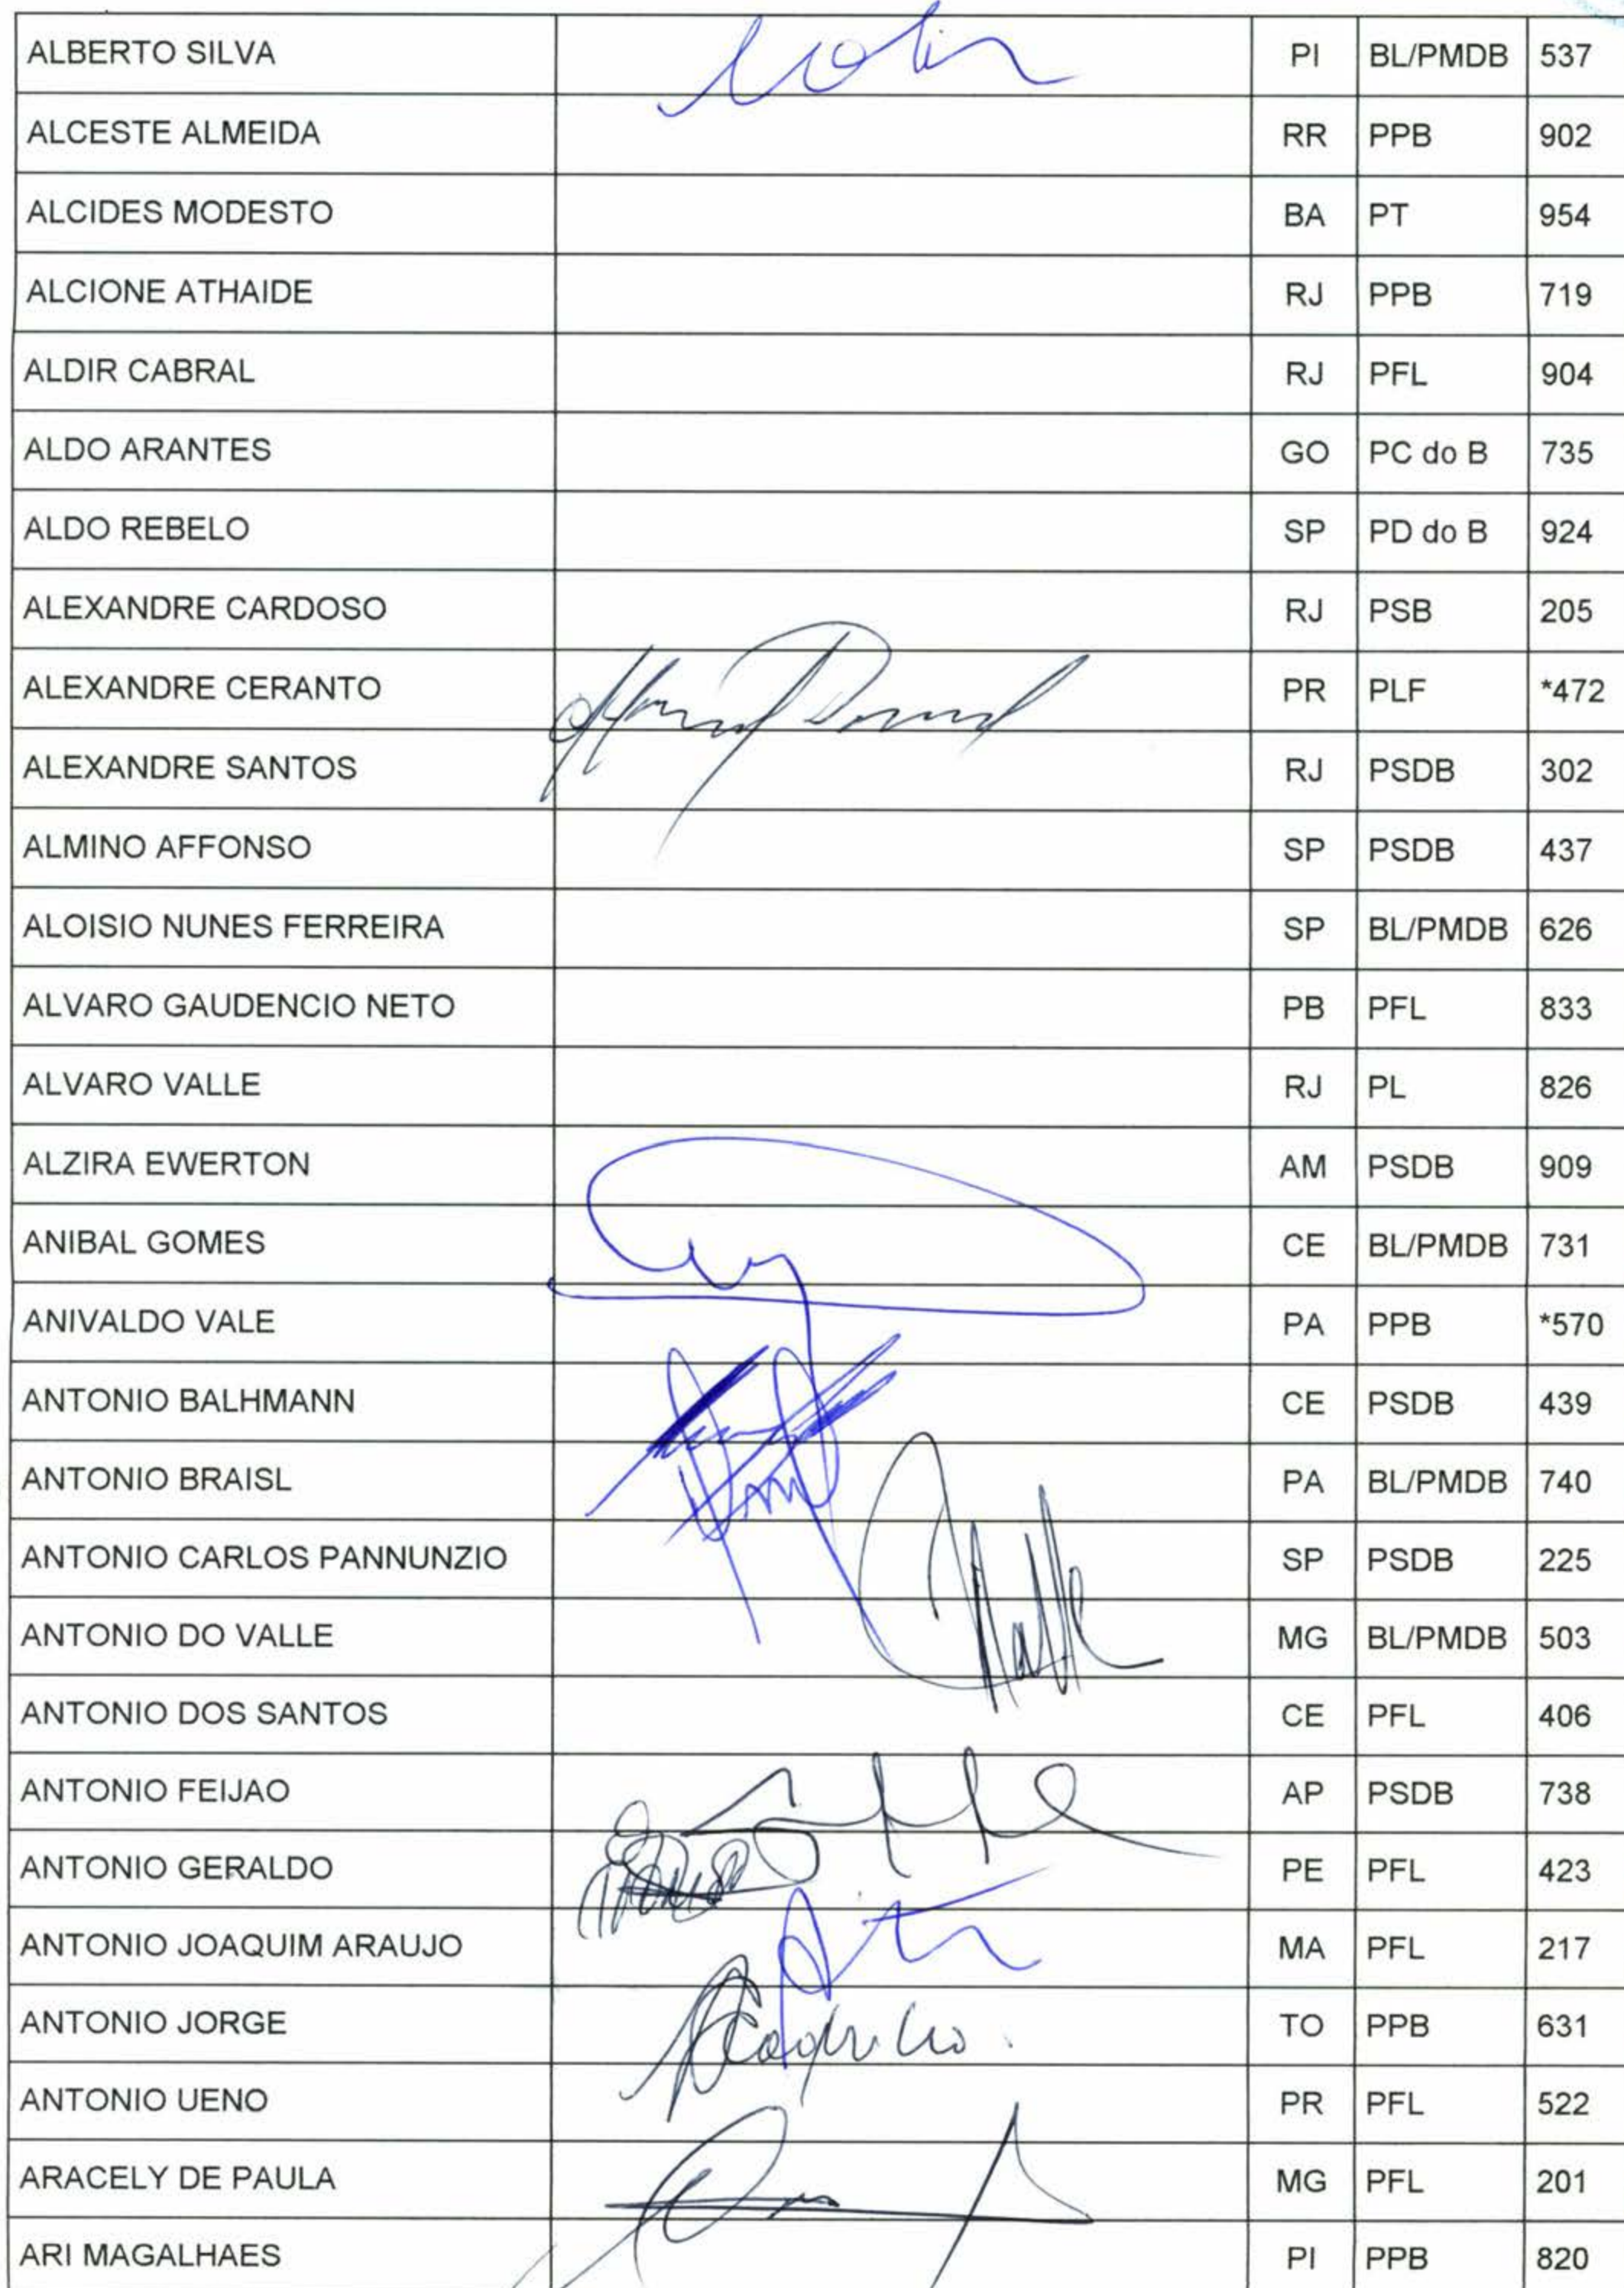 ALBERTO SILVA PI BL/PMDB 537
ALCESTE ALMEIDA RR PPB 902
ALCIDES MODESTO BA PT 954
ALCIONE ATHAIDE RJ PPB 719
ALDIR CABRAL RJ PFL 904
ALDO ARANTES GO PC do B 735
ALDO REBELO SP PD do B 924
ALEXANDRE CARDOSO RJ PSB 205
ALEXANDRE CERANTO PR PLF *472
ALEXANDRE SANTOS RJ PSDB 302
ALMINO AFFONSO SP PSDB 437
ALOISIO NUNES FERREIRA SP BL/PMDB 626
ALVARO GAUDENCIO NETO PB PFL 833
ALVARO VALLE RJ PL 826
ALZIRA EWERTON AM PSDB 909
ANIBAL GOMES CE BL/PMDB 731
ANIVALDO VALE PA PPB *570
ANTONIO BALHMANN CE PSDB 439
ANTONIO BRAISL PA BL/PMDB 740
ANTONIO CARLOS PANNUNZIO SP PSDB 225
ANTONIO DO VALLE MG BL/PMDB 503
ANTONIO DOS SANTOS CE PFL 406
ANTONIO FEIJAO AP PSDB 738
ANTONIO GERALDO PE PFL 423
ANTONIO JOAQUIM ARAUJO MA PFL 217
ANTONIO JORGE TO PPB 631
ANTONIO UENO PR PFL 522
ARACELY DE PAULA MG PFL 201
ARI MAGALHAES PI PPB 820